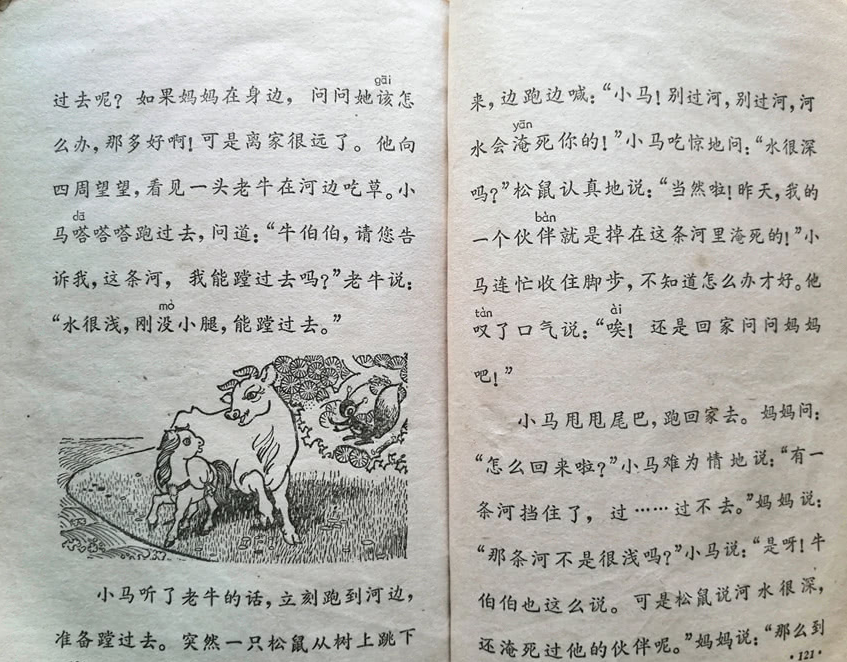 gāi
过去呢？如果妈妈在身边，问问她该怎
么办，那多好啊！可是离家很远了。他向
四周望望，看见一头老牛在河边吃草。小
dā
马嗒嗒嗒跑过去，问道：“牛伯伯，请您告
诉我，这条河，我能蹚过去吗？”老牛说：
mò
“水很浅，刚没小腿，能蹚过去。”
小马听了老牛的话，立刻跑到河边，
准备蹚过去。突然一只松鼠从树上跳下
来，边跑边喊：“小马！别过河，别过河，河
yān
水会淹死你的！”小马吃惊地问：“水很深
吗？”松鼠认真地说：“当然啦！昨天，我的
bàn
一个伙伴就是掉在这条河里淹死的！”小
马连忙收住脚步，不知道怎么办才好。他
tàn ài
叹了口气说：“唉！还是回家问问妈妈
吧！”
小马甩甩尾巴，跑回家去。妈妈问：
“怎么回来啦？”小马难为情地说：“有一
条河挡住了，过……过不去。”妈妈说：
“那条河不是很浅吗？”小马说：“是呀！牛
伯伯也这么说。可是松鼠说河水很深，
还淹死过他的伙伴呢。”妈妈说：“那么到
·121·